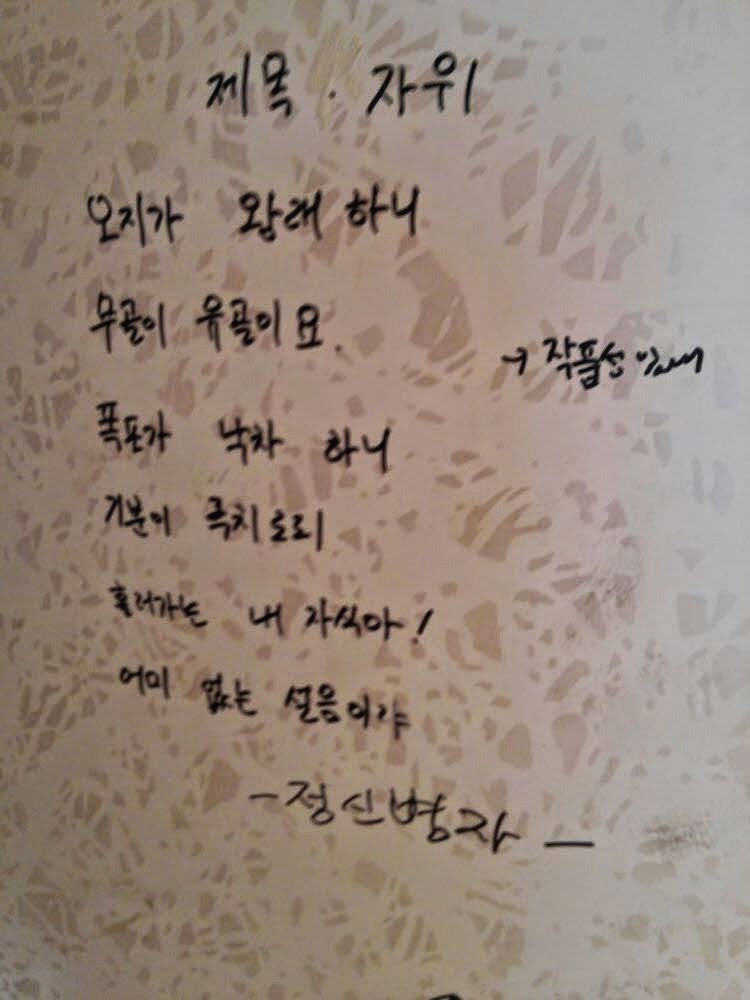 제목. 자위
오지가 왕래 하니
무골이 유골이 요.
→ 작품성 있네
폭포가 낙차 하니
기분이 극치로리
흘러가는 내 자식아!
어미 없는 설음이랴
-정신병자-